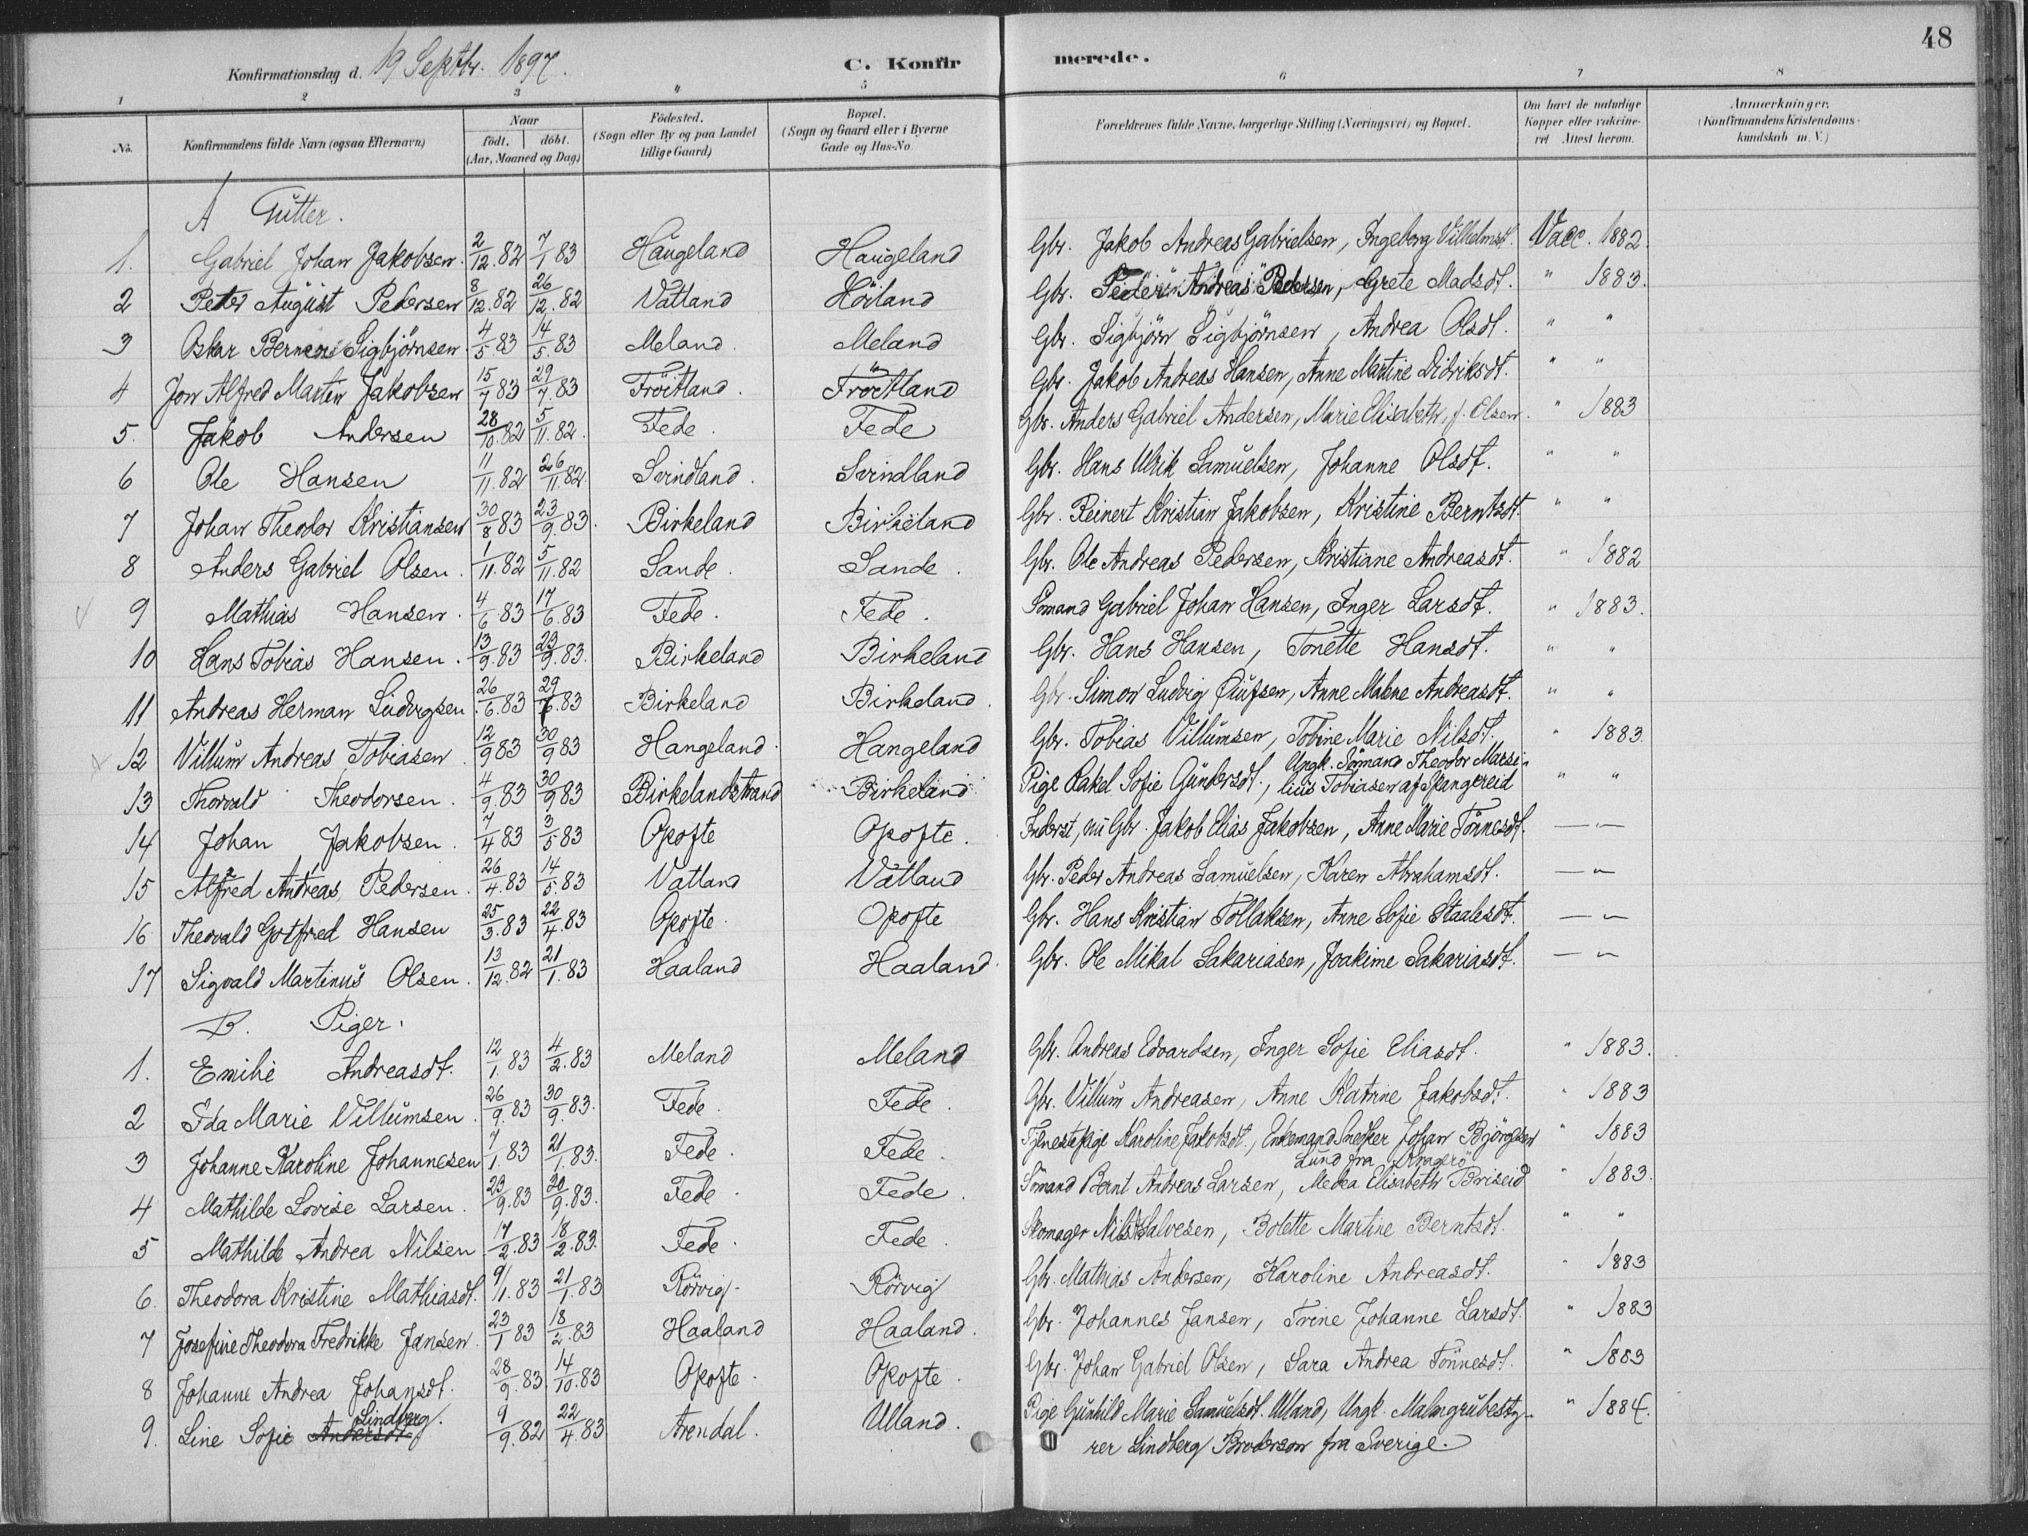 48
Konfirmationsdag d. 19 Septbr. 1897. C. Konfirmerede.
1 2 3 4 5 6 7 8
No. Konfirmandens fulde Navn (ogsaa Efternavn) Naar født. døbt. (Aar, Maaned og Dag) Fødested. (Sogn eller By og paa Landet tillige Gaard) Bopæl. (Sogn og Gaard eller i Byerne Gade og Hus-No. Forældrenes fulde Navne, borgerlige Stilling (Næringsvei) og Bopæl. Om havt de naturlige Kopper eller vakcineret Attest herom. Anmærkninger. (Konfirmandens Kristendomskundskab m. V.)
A Gutter.
1. Gabriel Johan Jakobsen. 2/12.82 7/1 83 Haugeland Haugeland Gbr. Jakob Andreas Gabrielsen, Ingeborg Vilhelmsd. Vacc. 1882.
2 Peter August Pedersen 8/12.82 26/12.82 Vatland Höiland Gbr. Peder Andreas Pedersen, Grete Madsdt. " 1883.
3 Oskar Sigbjørnsen 4/5 83 14/5.83 Meland. Meland Gbr. Sigbjörn Sigbjörnsen, Andrea Olsdt. " "
4 Jon Alfred Martin Jakobsen 15/7 83 29/7.83 Fröitland. Fröitland Gbr. Jakob Andreas Hansen, Anne Martine Didriksdt. " "
5. Jakob Andersen 28/10.82 5/11.82. Fede. Fede Gbr. Anders Gabriel Andersen, Marie Elisabeth, f. Olsen. " 1883
6 Ole Hansen 11/11.82 26/11.82. Svindland. Svindland Gbr. Hans Ulrik Samuelsen, Johanne Olsdt. " "
7 Johan Theodor Kristiansen 30/8 83 23/9.83. Birkeland Birkeland Gbr. Reinert Kristian Jakobsen, Kristine Berntsdt. " "
8 Anders Gabriel Olsen. 1/11.82 5/11.82 Sande. Sande. Gbr. Ole Andreas Pedersen, Kristiane Andreasdt. " 1882
9 Mathias Hansen. 4/6 83 17/6.83 Fede. Fede. Sömand Gabriel Johan Hansen, Inger Larsdt. " 1883.
10 Hans Tobias Hansen. 13/9.83 23/9.83. Birkeland Birkeland Gbr. Hans Hansen, Tonette Hansdt. " "
11 Andreas Herman Ludvigsen 26/6.83 29/7.83 Birkeland Birkeland. Gbr. Simon Ludvig Olufsen, Anne Malene Andreasdt. " "
12 Villum Andreas Tobiasen 12/9 83 30/9 83 Hangeland. Hangeland Gbr. Tobias Villumsen, Tobine Marie Nilsdt. " 1883.
13 Thorvald Theodorsen. 4/9.83 30/9 83 Birkelandstrand Birkeland Pige Rakel Sofie Gundersdt., Ungk. Sömand Theodor Marsilius Tobiasen af Spangereid " "
14 Johan Jakobsen. 7/4 83 3/5 83 Opofte Opofte. Inderst, nu Gbr. Jakob Elias Jakobsen, Anne Marie Tönnesdt. — " —
15 Alfred Andreas Pedersen. 26/4.83 14/5.83 Vatland Vatland Gbr. Peder Andreas Samuelsen, Karen Abrahamsdt. — "
16 Theovald Gotfred Hansen 25/3.83 22/4.83 Opofte. Opofte Gbr. Hans Kristian Tollaksen, Anne Sofie Staalesdt. — "
17 Sigvald Martinus Olsen. 13/12.82 21/1.83 Haaland Haaland. Gbr. Ole Mikal Sakariasen, Joakime Sakariasdt. — "
B. Piger.
1. Emilie Andreasdt. 12/1.83 4/2.83 Meland Meland Gbr. Andreas Edvardsen, Inger Sofie Eliasdt. " 1883.
2 Ida Marie Villumsen. 26/9.83 30/9.83. Fede. Fede. Gbr. Villum Andreasen, Anne Katrine Jakobsdt. " 1883
3 Johanne Karoline Johannesen 7/1 83 21/1.83. Fede. Fede. Tjenestepige Karoline Jakobsdt., Enkemand Snedker Johan Björgsen Lund fra Kragerö " 1883
4 Mathilde Lovise Larsen. 23/9.83 30/9.83. Fede. Fede. Sömand Bernt Andreas Larsen, Medea Elisabeth Briseid " 1883.
5 Mathilde Andrea Nilsen 17/2.83 18/2.83. Fede. Fede. Skomager Nils Salvesen, Bolette Martine Berntsdt. " "
6. Theodora Kristine Mathiasdt. 9/1.83 21/1.83 Rörvig. Rörvig Gbr. Mathias Andersen, Karoline Andreasdt. " 1883
7 Josefine Theodora Fredrikke Jansen. 23/1 83 18/2.83 Haaland Haaland. Gbr. Johannes Jansen, Trine Johanne Larsdt. " 1883
8 Johanne Andrea Johansdt. 28/9.83 14/10.83 Opofte. Opofte. Gbr. Johan Gabriel Olsen, Sara Andrea Tönnesdt. " 1883
9. Line Sofie Andersdt Lindberg. 9/9.82 22/4.83 Arendal. Ulland. Pige Gunhild Marie Samuelsdt. Ulland, Ungk. Malmgrubesty- " 1884.
rer Lindberg Broderson fra Sverige.